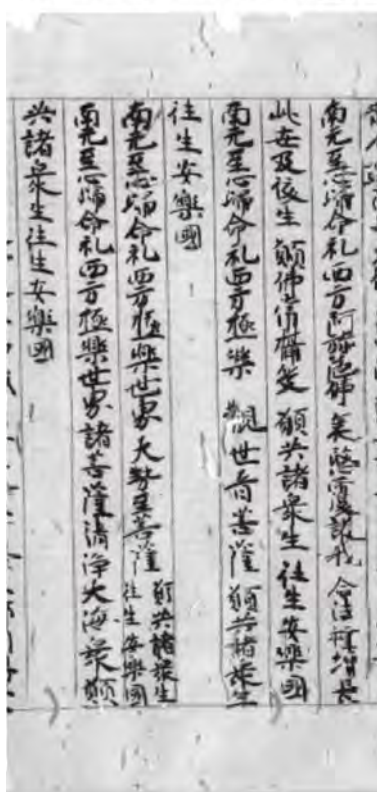 南无至心歸命礼西方阿弥陁佛 哀愍覆護我 令法種增長
此世及後生 願佛常攝受 願共諸衆生 往生安樂國
南无至心歸命礼西方極樂 觀世音菩薩 願共諸衆生
往生安樂國
南无至心歸命礼西方極樂世界大勢至菩薩 願共諸衆生
往生安樂國
南无至心歸命礼西方極樂世界諸菩薩清淨大海衆願
共諸衆生往生安樂國